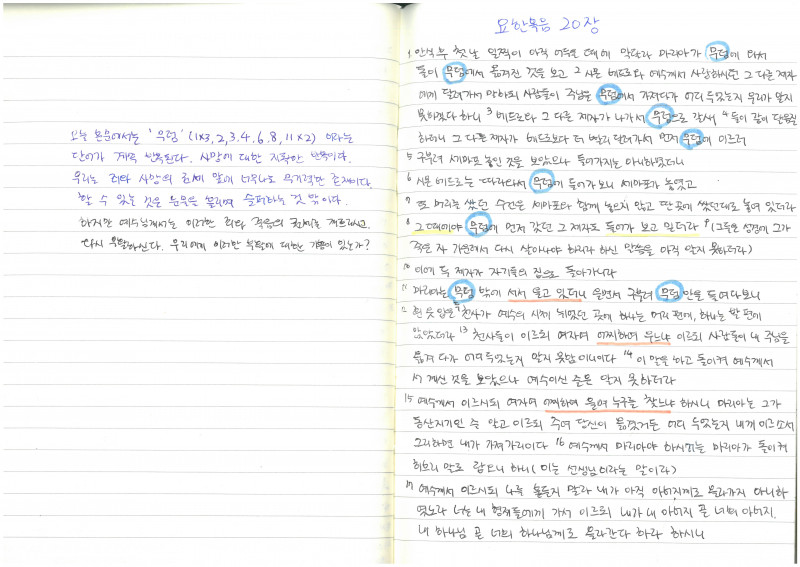 오늘 본문에서는 '무덤' (1×3, 2, 3, 4, 6, 8, 11×2) 이라는
단어가 계속 반복된다. 사망에 대한 지독한 반복이다.
우리는 죄와 사망의 권세 앞에 너무나도 무기력한 존재이다.
할 수 있는 것은 눈물을 흘리며 슬퍼하는 것 밖이다.
하지만 예수님께서는 이러한 죄와 죽음의 권세를 깨뜨리시고,
다시 부활하신다. 우리에게 이러한 부활에 대한 기쁨이 있는가?
요한복음 20장
1 안식 후 첫날 일찍이 아직 어두울 때에 막달라 마리아가 무덤에 와서
돌이 무덤에서 옮겨진 것을 보고 2 시몬 베드로와 예수께서 사랑하시던 그 다른 제자
에게 달려가서 말하되 사람들이 주님을 무덤에서 가져다가 어디 두었는지 우리가 알지
못하겠다 하니 3 베드로와 그 다른 제자가 나가서 무덤으로 갈새 4 둘이 같이 달음질
하더니 그 다른 제자가 베드로보다 더 빨리 달려가서 먼저 무덤에 이르러
5 구부려 세마포 놓인 것을 보았으나 들어가지는 아니하였더니
6 시몬 베드로는 따라와서 무덤에 들어가 보니 세마포가 놓였고
7 또 머리를 쌌던 수건은 세마포와 함께 놓이지 않고 딴 곳에 쌌던대로 놓여 있더라
8 그 때에야 무덤에 먼저 갔던 그 제자도 들어가 보고 믿더라 9 (그들은 성경에 그가
죽은 자 가운데서 다시 살아나야 하리라 하신 말씀을 아직 알지 못하더라)
10 이에 두 제자가 자기들의 집으로 돌아가니라
11 마리아는 무덤 밖에 서서 울고 있더니 울면서 구부려 무덤 안을 들여다보니
12 흰 옷 입은 두 천사가 예수의 시체 뉘었던 곳에 하나는 머리 편에, 하나는 발 편에
앉았더라 13 천사들이 이르되 여자여 어찌하여 우느냐 이르되 사람들이 내 주님을
옮겨다가 어디 두었는지 알지 못함이니이다 14 이 말을 하고 돌이켜 예수께서
서 계신 것을 보았으나 예수이신 줄은 알지 못하더라
15 예수께서 이르시되 여자여 어찌하여 울며 누구를 찾느냐 하시니 마리아는 그가
동산지기인 줄 알고 이르되 주여 당신이 옮겼거든 어디 두었는지 내게 이르소서
그리하면 내가 가져가리이다 16 예수께서 마리아야 하시거늘 마리아가 돌이켜
히브리 말로 랍오니 하니 (이는 선생님이라는 말이라)
17 예수께서 이르시되 나를 붙들지 말라 내가 아직 아버지께로 올라가지 아니하
였노라 너는 내 형제들에게 가서 이르되 내가 내 아버지 곧 너희 아버지,
내 하나님 곧 너희 하나님께로 올라간다 하라 하시니